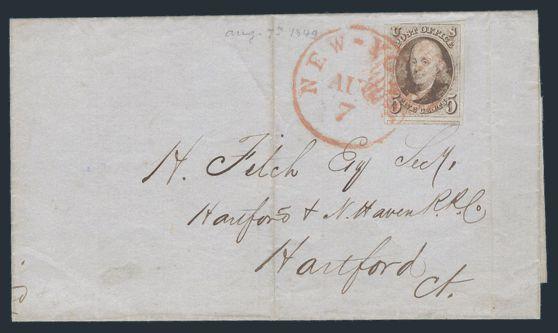 aug. 7th 1849
NEW-YO
AUG
7
U S
POST OFFICE
FIVE CENTS
5 5
H. Fitch Esq Secy.
Hartford & N. Haven R.R. Co
Hartford
Ct.